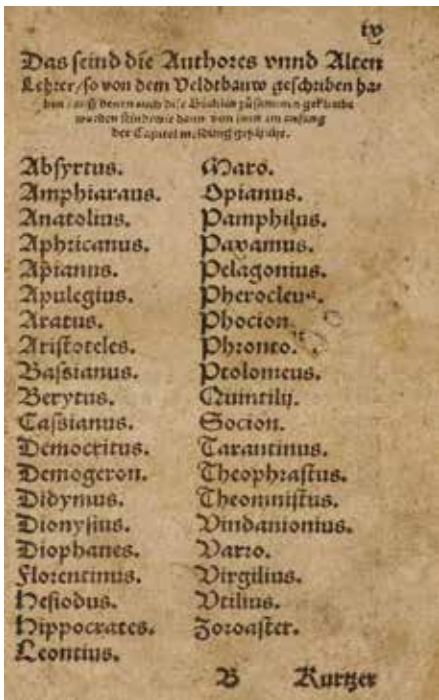 iv
Das seind die Authores vnnd Alten
Lehrer / so von dem Veldtbauw geschriben ha-
ben / auß denen auch dise Büchlin zůsammen
worden seind wie dann von jnen im anfang
der Capitel meldung geschicht.
Absyrtus.
Amphiaraus.
Anatolius.
Aphricanus.
Apianus.
Apulegius.
Aratus.
Aristoteles.
Bassianus.
Berytus.
Cassianus.
Democritus.
Demogeron.
Didymus.
Dionysius.
Diophanes.
Florentinus.
Hesiodus.
Hippocrates.
Leontius.
Maro.
Opianus.
Pamphilus.
Paxamus.
Pelagonius.
Pherocleus.
Phocion.
Phronto.
Ptolomeus.
Quintilij.
Socion.
Tarantinus.
Theophrastus.
Theomnistus.
Vindanionius.
Varro.
Virgilius.
Vtilius.
Zoroaster.
B Kurtzer